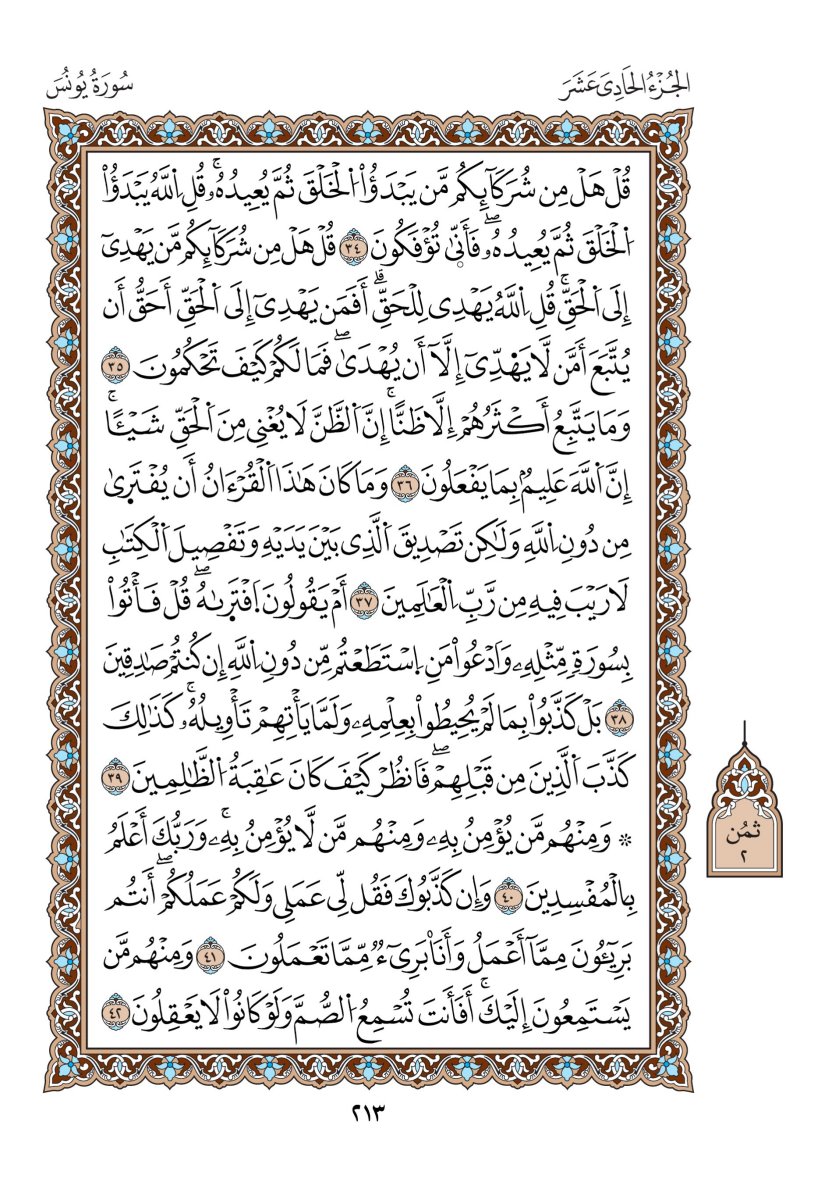 الجُزْءُ الحَادِى عَشَرَ
سُورَةُ يُونُسَ
قُلْ هَلْ مِن شُرَكَآئِكُم مَّن يَبْدَؤُاْ اُ۬لْخَلْقَ ثُمَّ يُعِيدُهُۥۚ قُلِ اِ۬للَّهُ يَبْدَؤُاْ
اُ۬لْخَلْقَ ثُمَّ يُعِيدُهُۥۖ فَأَنّىٰ تُؤْفَكُونَ ٣٤ قُلْ هَلْ مِن شُرَكَآئِكُم مَّن يَهْدِىٓ
إِلَى اَ۬لْحَقِّۚ قُلِ اِ۬للَّهُ يَهْدِى لِلْحَقِّۗ أَفَمَن يَهْدِىٓ إِلَى اَ۬لْحَقِّ أَحَقُّ أَن
يُتَّبَعَ أَمَّن لَّا يَهَدِّىٓ إِلَّآ أَن يُهْدَىٰۖ فَمَا لَكُمْ كَيْفَ تَحْكُمُونَ ٣٥
وَمَا يَتَّبِعُ أَكْثَرُهُمْ إِلَّا ظَنًّاۚ إِنَّ اَ۬لظَّنَّ لَا يُغْنِى مِنَ اَ۬لْحَقِّ شَيْـًٔاۚ
إِنَّ اَ۬للَّهَ عَلِيمُۢ بِمَا يَفْعَلُونَ ٣٦ وَمَا كَانَ هَٰذَا اَ۬لْقُرْءَانُ أَن يُفْتَرىٰ
مِن دُونِ اِ۬للَّهِ وَلَٰكِن تَصْدِيقَ اَ۬لَّذِى بَيْنَ يَدَيْهِ وَتَفْصِيلَ اَ۬لْكِتَٰبِ
لَا رَيْبَ فِيهِ مِن رَّبِّ اِ۬لْعَٰلَمِينَ ٣٧ أَمْ يَقُولُونَ اَ۪فْتَرىٰهُۖ قُلْ فَأْتُواْ
بِسُورَةٖ مِّثْلِهِۦ وَادْعُواْ مَنِ اِ۪سْتَطَعْتُم مِّن دُونِ اِ۬للَّهِ إِن كُنتُمْ صَٰدِقِينَ
٣٨ بَلْ كَذَّبُواْ بِمَا لَمْ يُحِيطُواْ بِعِلْمِهِۦ وَلَمَّا يَأْتِهِمْ تَأْوِيلُهُۥۚ كَذَٰلِكَ
كَذَّبَ اَ۬لَّذِينَ مِن قَبْلِهِمْۖ فَانظُرْ كَيْفَ كَانَ عَٰقِبَةُ اُ۬لظَّٰلِمِينَ ٣٩
۞ وَمِنْهُم مَّن يُؤْمِنُ بِهِۦ وَمِنْهُم مَّن لَّا يُؤْمِنُ بِهِۦۚ وَرَبُّكَ أَعْلَمُ
بِالْمُفْسِدِينَ ٤٠ وَإِن كَذَّبُوكَ فَقُل لِّى عَمَلِى وَلَكُمْ عَمَلُكُمْۖ أَنتُم
بَرِيٓـُٔونَ مِمَّآ أَعْمَلُ وَأَنَا۠ بَرِىٓءٞ مِّمَّا تَعْمَلُونَ ٤١ وَمِنْهُم مَّن
يَسْتَمِعُونَ إِلَيْكَۚ أَفَأَنتَ تُسْمِعُ اُ۬لصُّمَّ وَلَوْ كَانُواْ لَا يَعْقِلُونَ ٤٢
ثمُن
٢
٢١٣